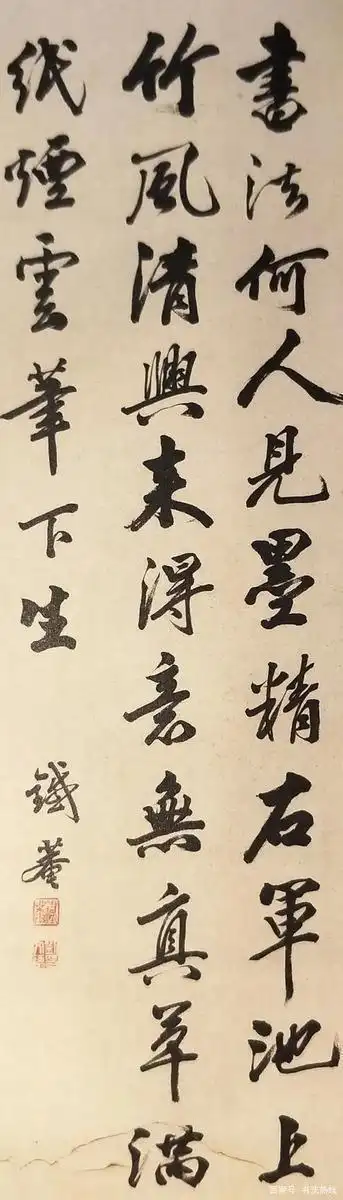 書法何人見墨精右軍池上
竹風清興来得意無真草滿
紙煙雲筆下生
鐵菴
百家号·书法热线